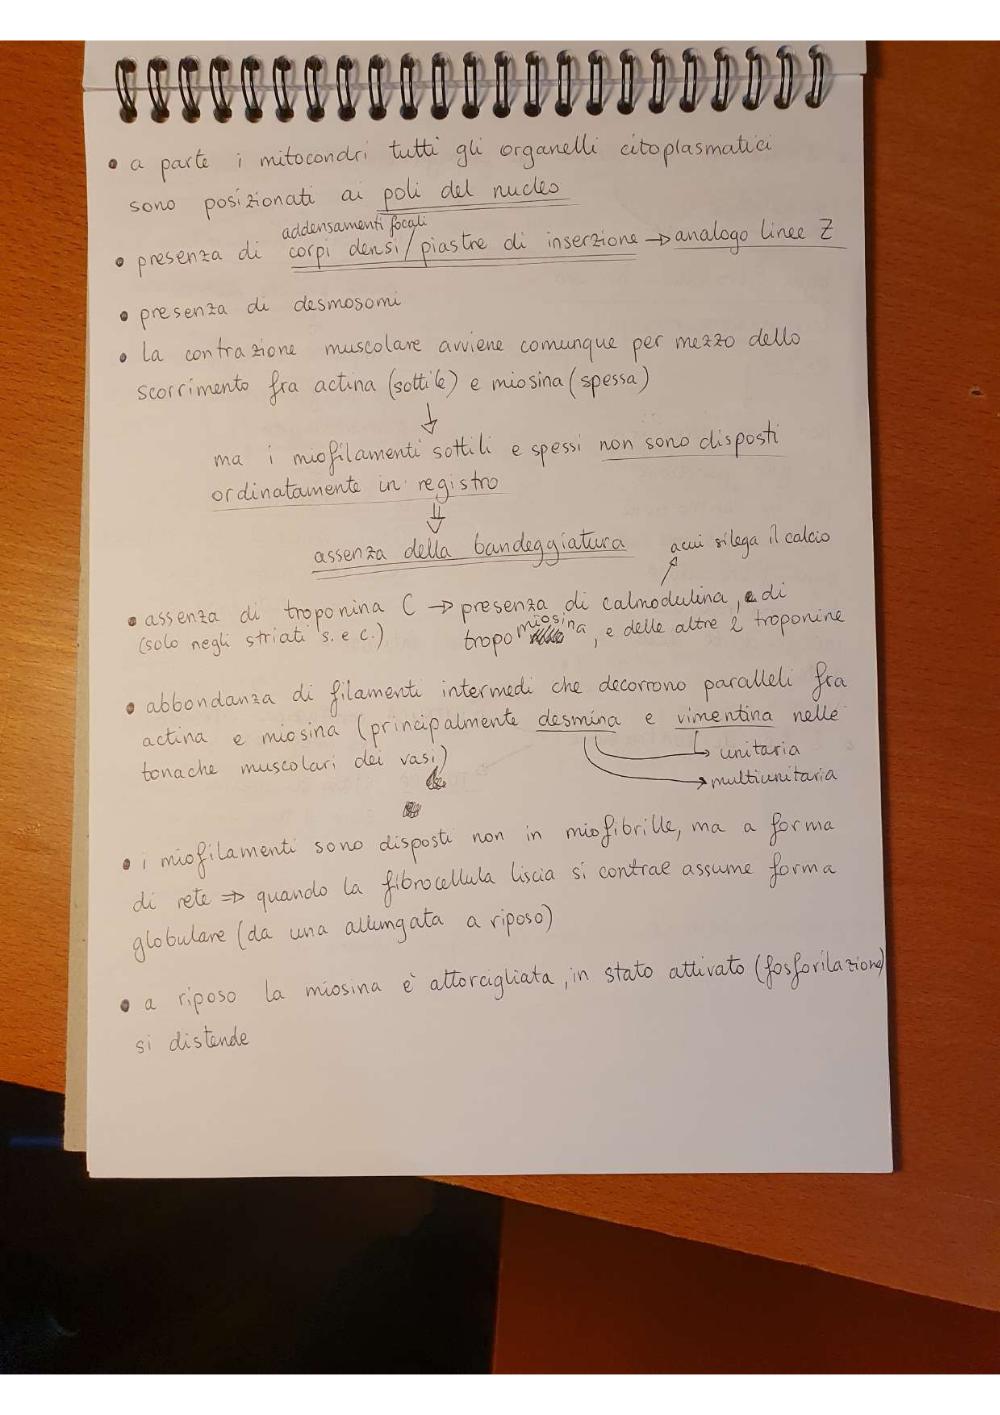 • a parte i mitocondri tutti gli organelli citoplasmatici
sono posizionati ai poli del nucleo
addensamenti focali
• presenza di corpi densi/piastre di inserzione → analogo linee Z
• presenza di desmosomi
• la contrazione muscolare avviene comunque per mezzo dello
scorrimento fra actina (sottile) e miosina (spessa)
↓
ma i miofilamenti sottili e spessi non sono disposti
ordinatamente in registro
⇓
assenza della bandeggiatura
a cui si lega il calcio
• assenza di troponina C → presenza di calmodulina, e di
(solo negli striati s. e c.) tropomiosina, e delle altre 2 troponine
• abbondanza di filamenti intermedi che decorrono paralleli fra
actina e miosina (principalmente desmina e vimentina nelle
tonache muscolari dei vasi) → unitaria
→ multiunitaria
• i miofilamenti sono disposti non in miofibrille, ma a forma
di rete ⇒ quando la fibrocellula liscia si contrae assume forma
globulare (da una allungata a riposo)
• a riposo la miosina è attorcigliata, in stato attivato (fosforilazione)
si distende